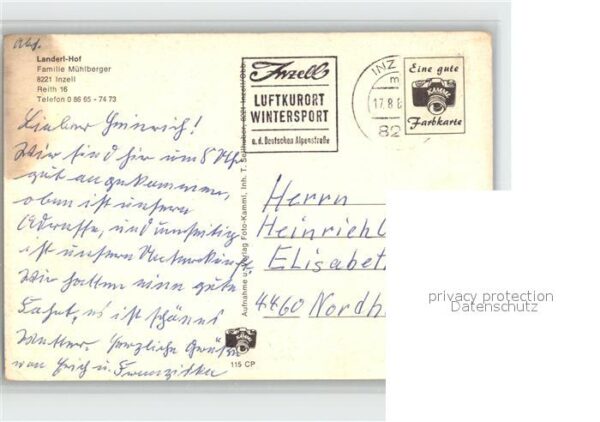 Abs.
Landerl-Hof
Familie Mühlberger
8221 Inzell
Reith 16
Telefon 0 86 65 - 74 73
Lieber Heinrich!
Wir sind hir um 8 Uhr
gut angekommen,
oben ist unsere
Adresse, und umseitig
ist unsere Unterkunft,
Wir hatten eine gute
Fahrt, es ist schönes
Wetter. Herzliche Grüße
von Erich u. Franziska
Aufnahme u. Verlag Foto-Kamml, Inh. T. 8221 Inzell/Obb.
115 CP
Inzell
LUFTKURORT
WINTERSPORT
a. d. Deutschen Alpenstraße
INZ
17.8.
82
Eine gute
KAMML
Farbkarte
Herrn
Heinrich
Elisabet
4460 Nordh
privacy protection
Datenschutz